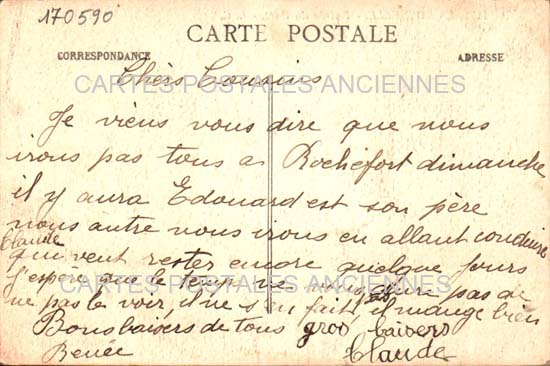 170590
CARTE POSTALE
CORRESPONDANCE
ADRESSE
CARTES POSTALES ANCIENNES
Chers Cousins
Je viens vous dire que nous
irons pas tous a Rochefort dimanche
il y aura Edouard est son père
nous autre nous irons en allant conduire
Claude
qui veut rester encore quelque jours
CARTES POSTALES ANCIENNES
J'espère que le temps ne vous pas de
ne pas le voir, il ne s'en fait pas il mange bien
Bons baisers de tous gros baisers
Renée Claude